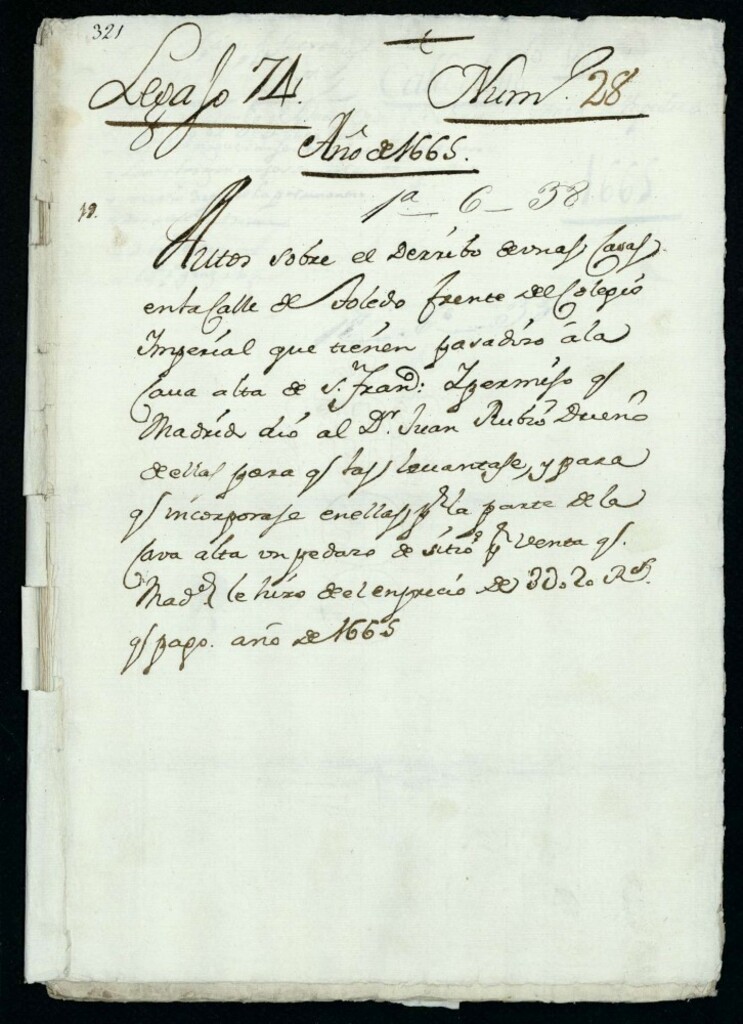 321
Legajo 74. Num.º 28
Año de 1665.
1ª - 6 - 38
Autos sobre el Derribo de vnas Casas
en la Calle de Toledo frente del Colegio
Imperial que tienen pasadizo â la
Caua alta de S.ⁿ Fran.ᶜᵒ: Y permiso q̃
Madrid dió al D.ʳ Juan Rubio Dueño
de ellas para q̃ las leuantase, y para
q̃ incorporase en ellas p.ʳ la parte de la
Caua alta vn pedazo de sitio p.ʳ venta q̃.
Mad.ᵈ le hizo de el en precio de R.ˢ
q̃ pago. año de 1665